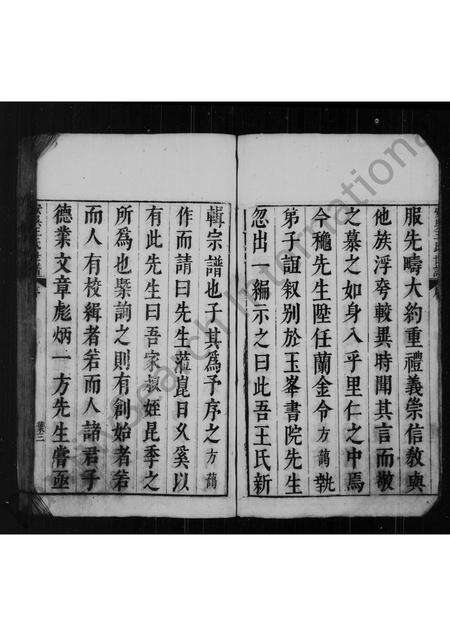 服先疇大約重禮義崇信敦與
他族浮夸較異時聞其言而敬
之慕之如身入乎里仁之中焉
今穐先生陞任蘭金令方蔄執
弟子誼叙别於玉峯書院先生
忽出一編示之曰此吾王氏新
輯宗譜也子其為予序之方蔄
作而請曰先生蒞崑日久奚以
有此先生曰吾家叔姪昆季之
所為也槩論之則有創始者若
而人有校緝者若而人諸君子
德業文章彪炳一方先生嘗亟